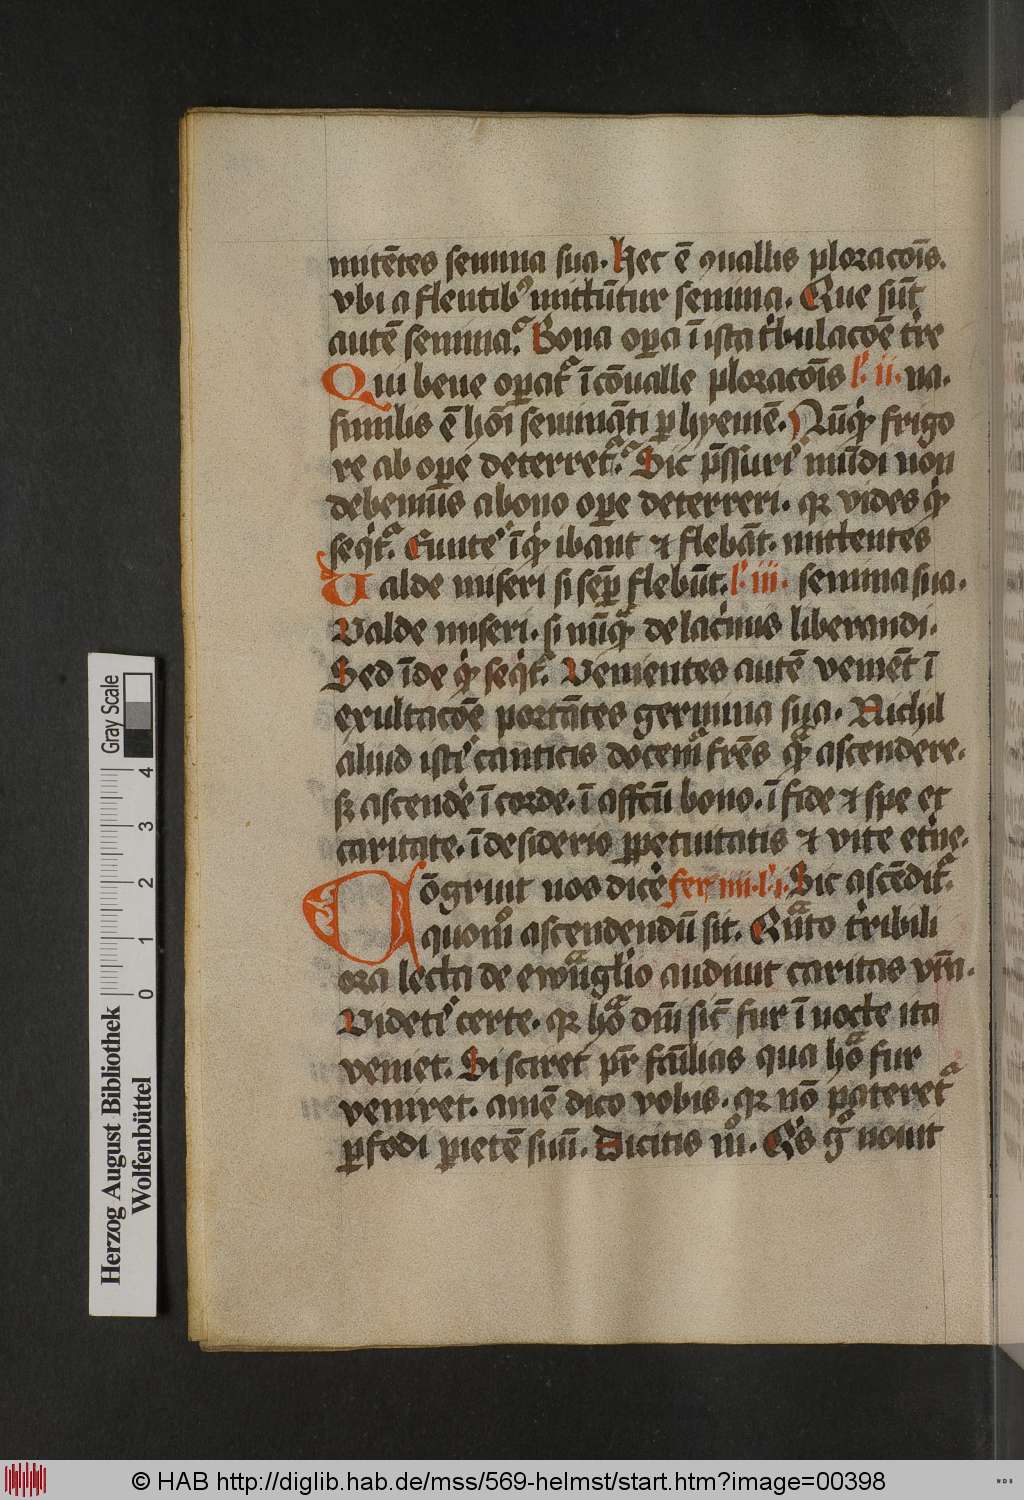 mitētes semina sua. Hec ē ꝯuallis ploracōis.
vbi a flentibꝰ mittūtur semina. Que sūt
autē semina. Bona oꝑa ī ista tribulacōe tr̄e
Qui bene oꝑatʳ ī cōualle ploracōis l' ii. na.
similis ē hōi semināti ꝑ hyemē. Nūqͥd frigo
re ab oꝑe deterretʳ. Sic p̄ssuris mūdi non
debemus a bono oꝑe deterreri. qꝛ vides qͥd
seqͥtʳ. Euntes īqͥd ibant ⁊ flebāt. mittentes
Ualde miseri si semꝑ flebūt. l' iii. semina sua.
Valde miseri. si nūqᷓ de lacͥmis liberandi.
Sed īde qͥd seqͥtʳ. Venientes autē veniēt ī
exultacōe portātes germina sua. Nichil
aliud istis canticis docemʳ frēs qᷓ ascendere.
sꝫ ascendē ī corde. ī affcū bono. ī fide ⁊ spe et
caritate. ī desiderio ꝑpetuitatis ⁊ vite etͥne.
Cōgruit nos dicē feꝛ iiii. l' i. Sic ascēditʳ.
quomͦ ascendendū sit. Qᷓnto tͥribili
ora lecta de ewᷓngelio audiuit caritas vr̄a.
Videtis certe. qꝛ hoᷓ dn̄i sicͭ fur ī nocte ita
veniet. Si sciret pr̄ familias qua hoᷓ fur
veniret. amē dico vobis. qꝛ nō pateretʳ
ꝑfodi pietē suū. Dicitis mͦ. Qͥs gͦ nouit
Gray Scale
4
3
2
1
0
Herzog August Bibliothek
Wolfenbüttel
© HAB http://diglib.hab.de/mss/569-helmst/start.htm?image=00398